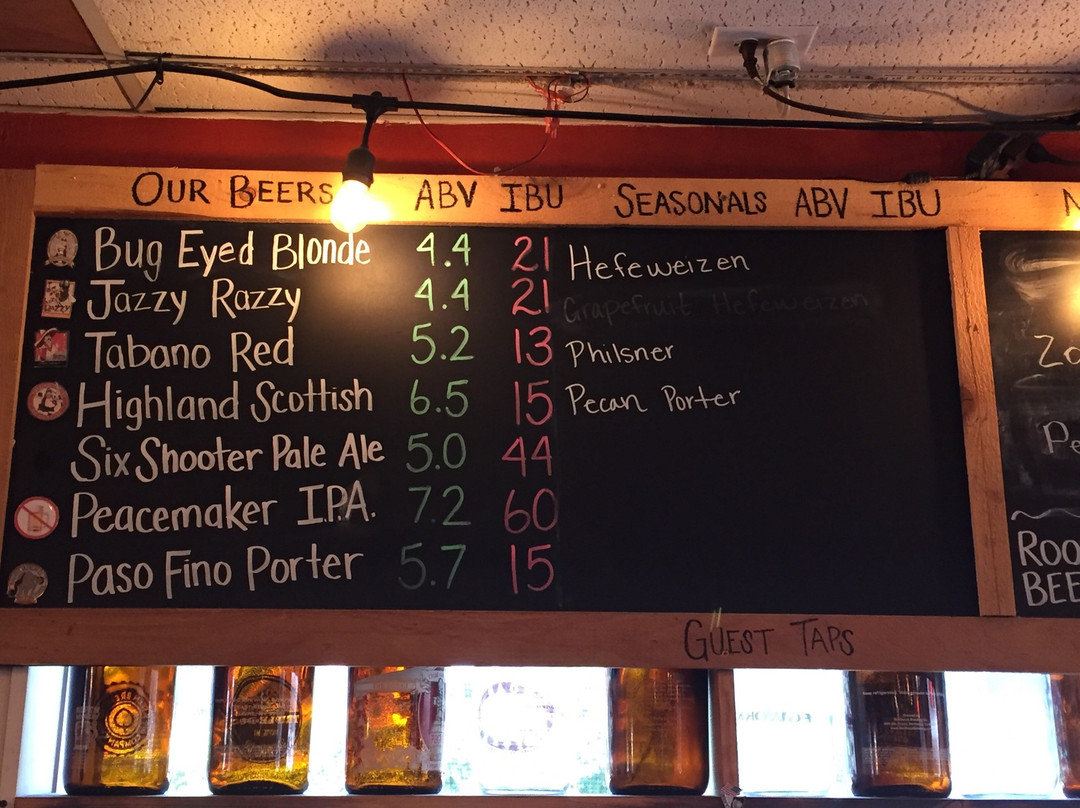 OUR BEERS ABV IBU SEASONALS ABV IBU
Bug Eyed Blonde 4.4 21
Jazzy Razzy 4.4 21
Tabano Red 5.2 13
Highland Scottish 6.5 15
Six Shooter Pale Ale 5.0 44
Peacemaker I.P.A. 7.2 60
Paso Fino Porter 5.7 15
Hefeweizen
Grapefruit Hefeweizen
Philsner
Pecan Porter
ROO
BEE
GUEST TAPS